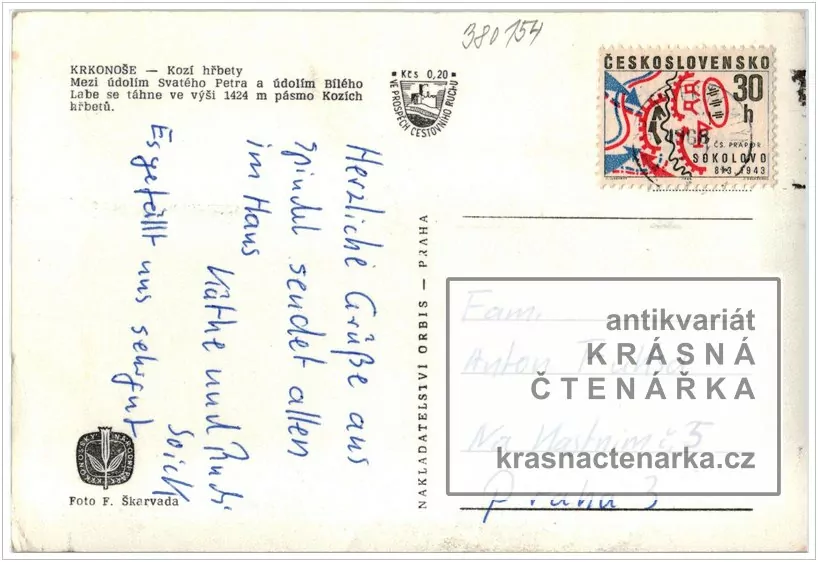 380154
KRKONOŠE — Kozí hřbety
Mezi údolím Svatého Petra a údolím Bílého
Labe se táhne ve výši 1424 m pásmo Kozích
hřbetů.
Kčs 0,20
VE PROSPĚCH CESTOVNÍHO RUCHU
ČESKOSLOVENSKO
30
h
ČS. PRAPOR
SOKOLOVO
8/3 1943
Herzliche Grüße aus
Spindel sendet allen
im Haus
Käthe und Rudi
Es gefällt uns sehr gut
NAKLADATELSTVÍ ORBIS — PRAHA
Fam.
Anton
Na
5
Praha 3
antikvariát
KRÁSNÁ
ČTENÁŘKA
krasnactenarka.cz
KRKONOŠSKÝ NÁRODNÍ PARK
Foto F. Škarvada